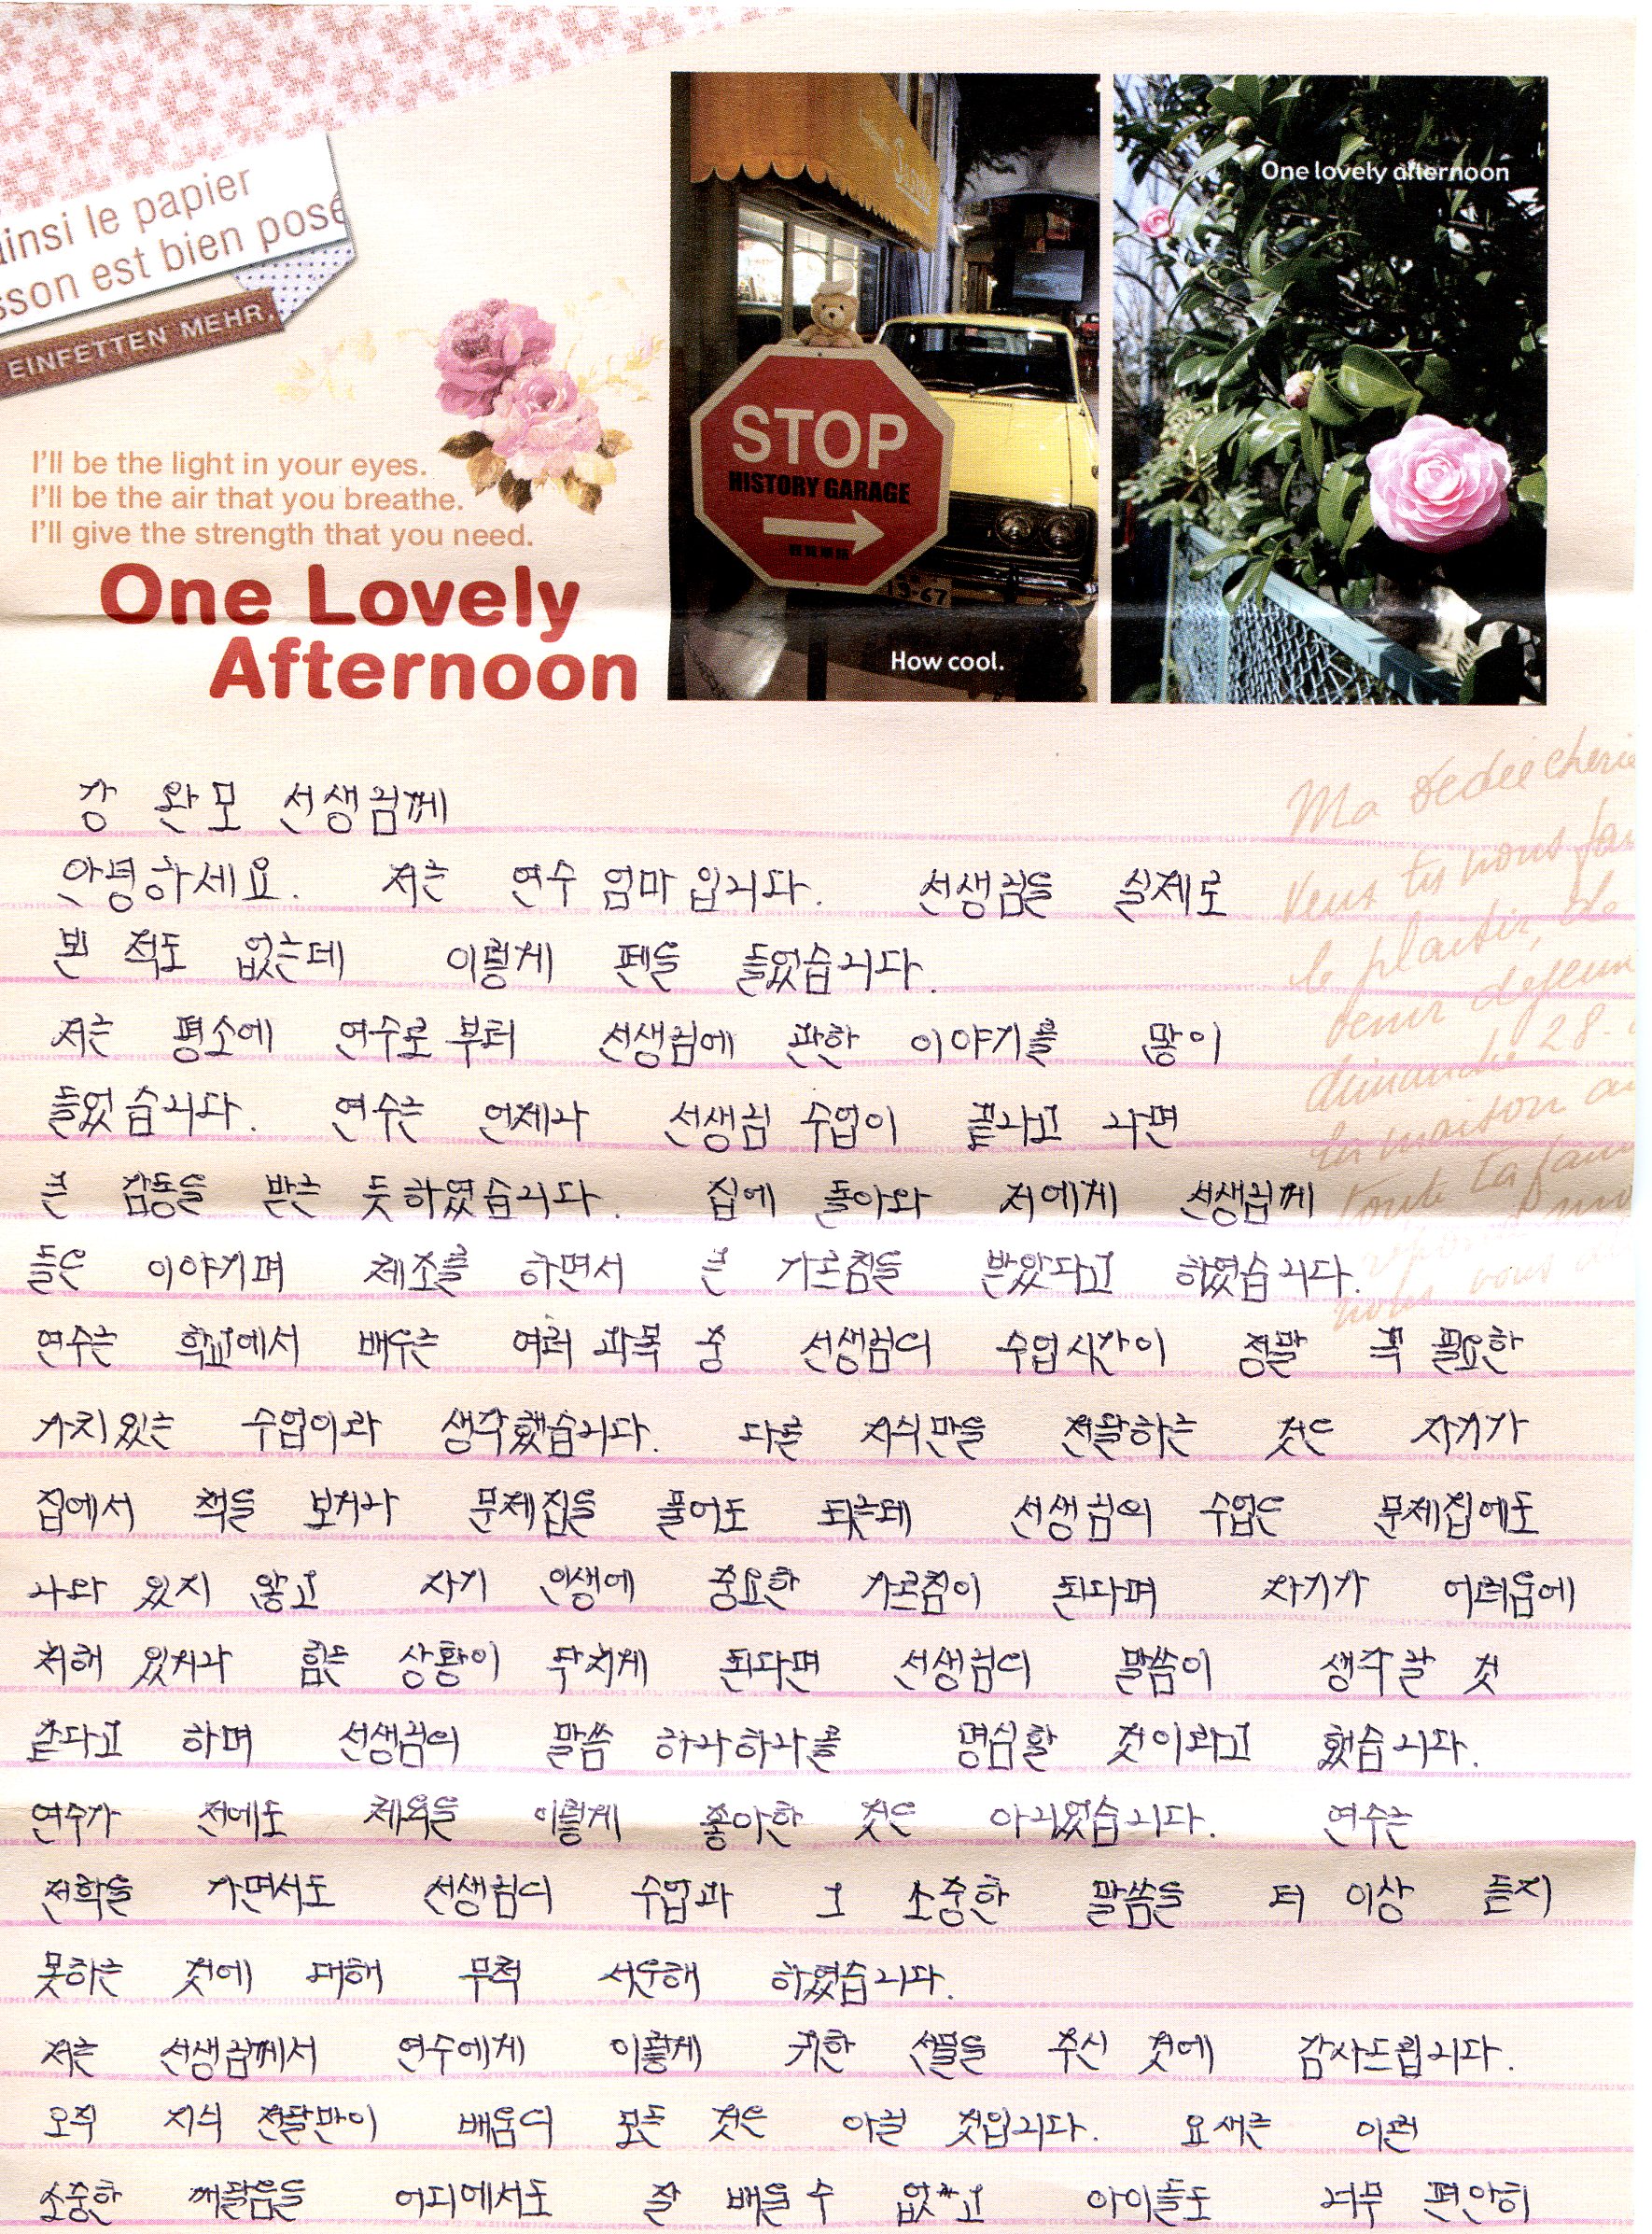 ainsi le papier
sson est bien posé
EINFETTEN MEHR.
I'll be the light in your eyes.
I'll be the air that you breathe.
I'll give the strength that you need.
One Lovely
Afternoon
STOP
HISTORY GARAGE
How cool.
One lovely afternoon
Ma chérie
Venez tu nous
le plaisir, de
venir
dimanche 28
la maison
toute ta
nous vous
강 완모 선생님께
안녕하세요. 저는 연수 엄마입니다. 선생님을 실제로
뵌 적도 없는데 이렇게 펜을 들었습니다.
저는 평소에 연수로부터 선생님에 관한 이야기를 많이
들었습니다. 연수는 언제나 선생님 수업이 끝나고 나면
큰 감동을 받는 듯하였습니다. 집에 돌아와 저에게 선생님께
들은 이야기며 체조를 하면서 큰 가르침을 받았다고 하였습니다.
연수는 학교에서 배우는 여러 과목 중 선생님의 수업시간이 정말 꼭 필요한
가치있는 수업이라 생각했습니다. 다른 지식만을 전달하는 것은 자기가
집에서 책을 보거나 문제집을 풀어도 되는데 선생님의 수업은 문제집에도
나와 있지 않고 자기 인생에 중요한 가르침이 된다며 자기가 어려움에
처해 있거나 힘든 상황이 닥치게 된다면 선생님의 말씀이 생각날 것
같다고 하며 선생님의 말씀 하나하나를 명심할 것이라고 했습니다.
연수가 전에도 체육을 이렇게 좋아한 것은 아니었습니다. 연수는
전학을 가면서도 선생님의 수업과 그 소중한 말씀을 더 이상 듣지
못하는 것에 대해 무척 서운해 하였습니다.
저는 선생님께서 연수에게 이렇게 귀한 선물을 주신 것에 감사드립니다.
오직 지식 전달만이 배움의 모든 것은 아닐 것입니다. 요새는 이런
소중한 깨달음을 어디에서도 잘 배울 수 없고 아이들도 너무 편안히